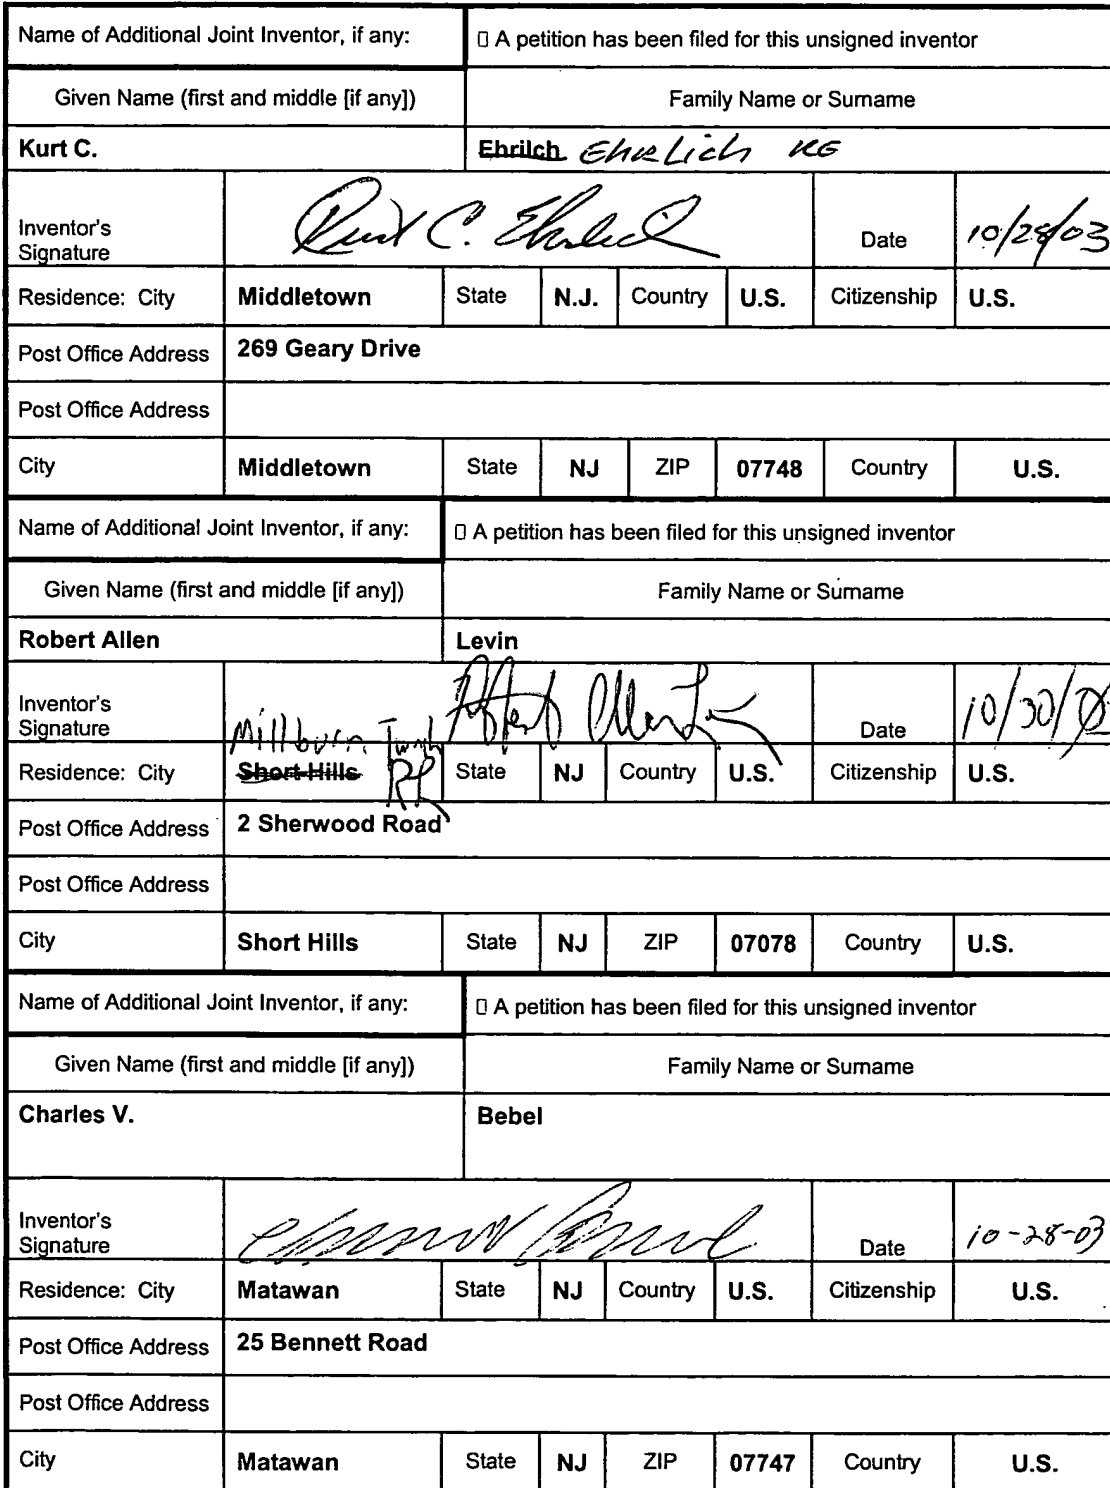 Name of Additional Joint Inventor, if any: ▯ A petition has been filed for this unsigned inventor
Given Name (first and middle [if any]) Family Name or Surname
Kurt C. Ehrilch Ehrlich KE
Inventor's Signature Kurt C. Ehrlich Date 10/28/03
Residence: City Middletown State N.J. Country U.S. Citizenship U.S.
Post Office Address 269 Geary Drive
Post Office Address
City Middletown State NJ ZIP 07748 Country U.S.
Name of Additional Joint Inventor, if any: ▯ A petition has been filed for this unsigned inventor
Given Name (first and middle [if any]) Family Name or Surname
Robert Allen Levin
Inventor's Signature Robert Allen Levin Date 10/30/0
Millburn Twnsh
Residence: City Short Hills State NJ Country U.S. Citizenship U.S.
Post Office Address 2 Sherwood Road
Post Office Address
City Short Hills State NJ ZIP 07078 Country U.S.
Name of Additional Joint Inventor, if any: ▯ A petition has been filed for this unsigned inventor
Given Name (first and middle [if any]) Family Name or Surname
Charles V. Bebel
Inventor's Signature Date 10-28-03
Residence: City Matawan State NJ Country U.S. Citizenship U.S.
Post Office Address 25 Bennett Road
Post Office Address
City Matawan State NJ ZIP 07747 Country U.S.